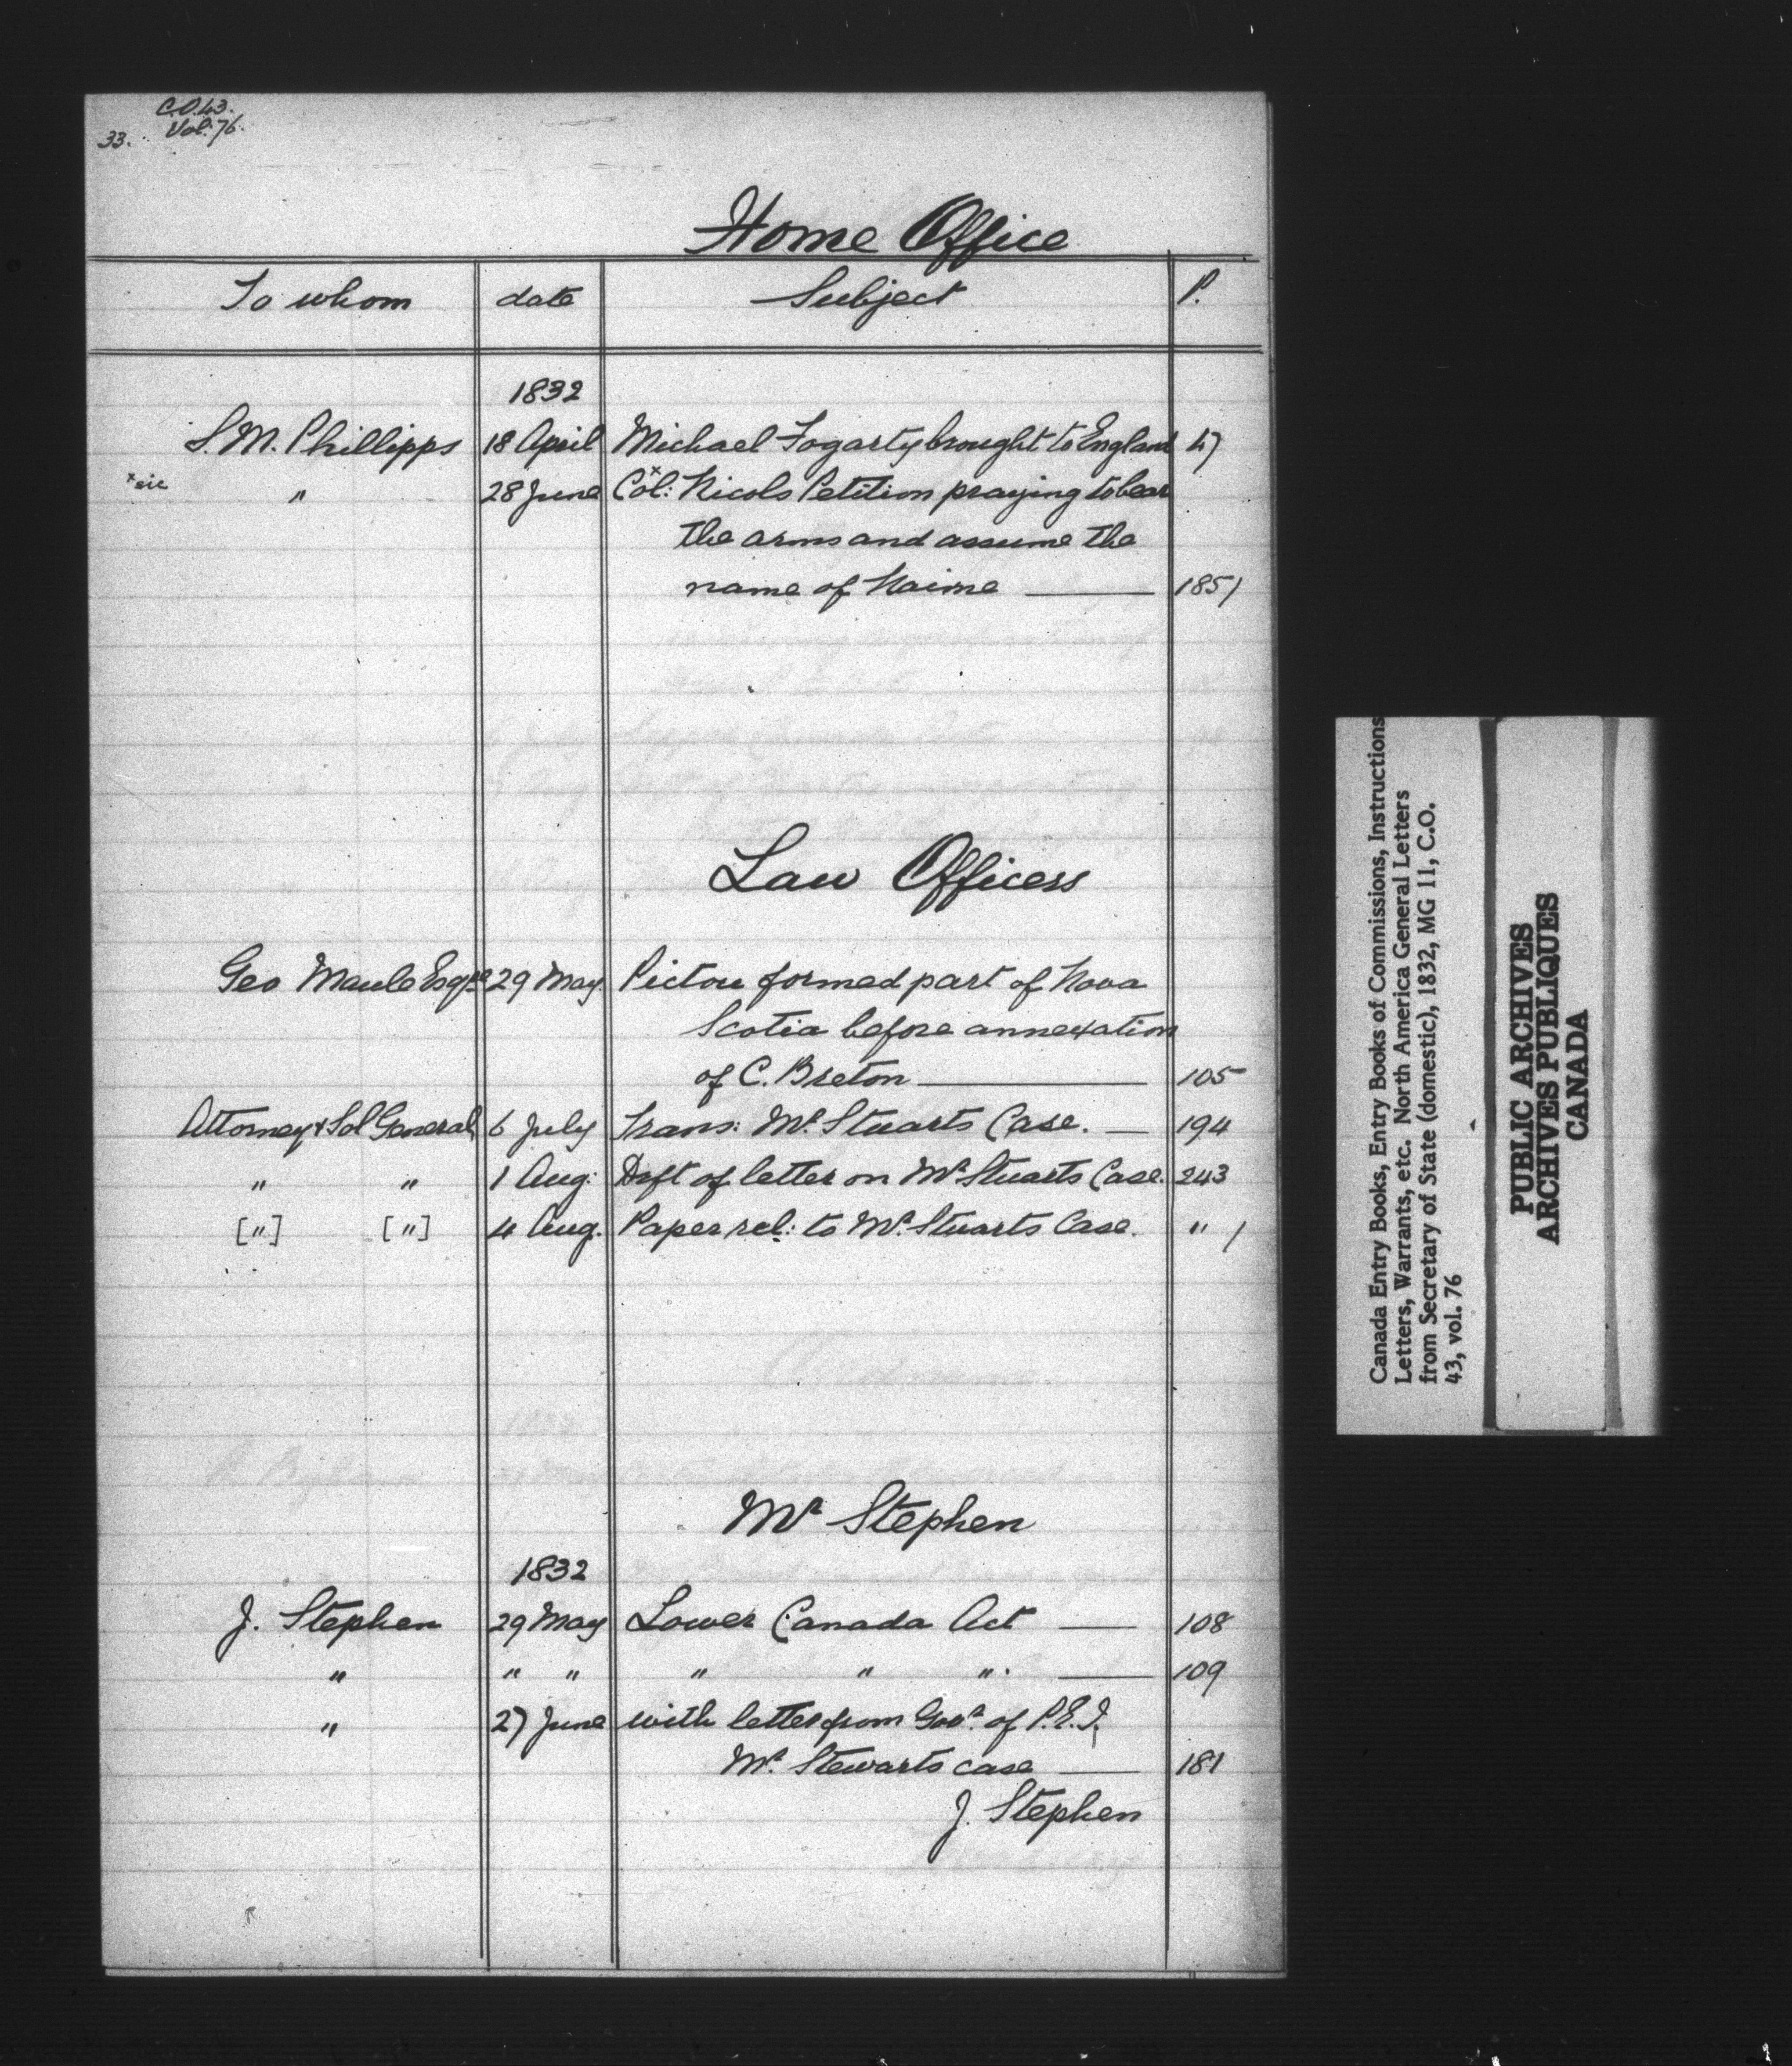 C.O.43.
33. Vol. 76.
Home Office
To whom date Subject P.
1832
S.M. Phillipps 18 April Michael Fogarty brought to England 47
*sic " 28 June Col:* Nicols Petition praying to bear
the arms and assume the
name of Nairne — 185/
Law Officers
Geo Maule Esqre 29 May Pictou formed part of Nova
Scotia before annexation
of C. Breton — 105
Attorney & Sol General 6 July Trans: Mr. Stuarts Case. — 194
" " 1 Aug: Dft of letter on Mr Stuarts Case. 243
["] ["] 4 Aug. Paper rel: to Mr. Stuarts Case. " /
Mr Stephen
1832
J. Stephen 29 May Lower Canada Act — 108
" " " " " " — 109
" 27 June with letter from Govr. of P.E.I.
Mr. Stewarts case — 181
J. Stephen
Canada Entry Books, Entry Books of Commissions, Instructions
Letters, Warrants, etc. North America General Letters
from Secretary of State (domestic), 1832, MG 11, C.O.
43, vol. 76
PUBLIC ARCHIVES
ARCHIVES PUBLIQUES
CANADA